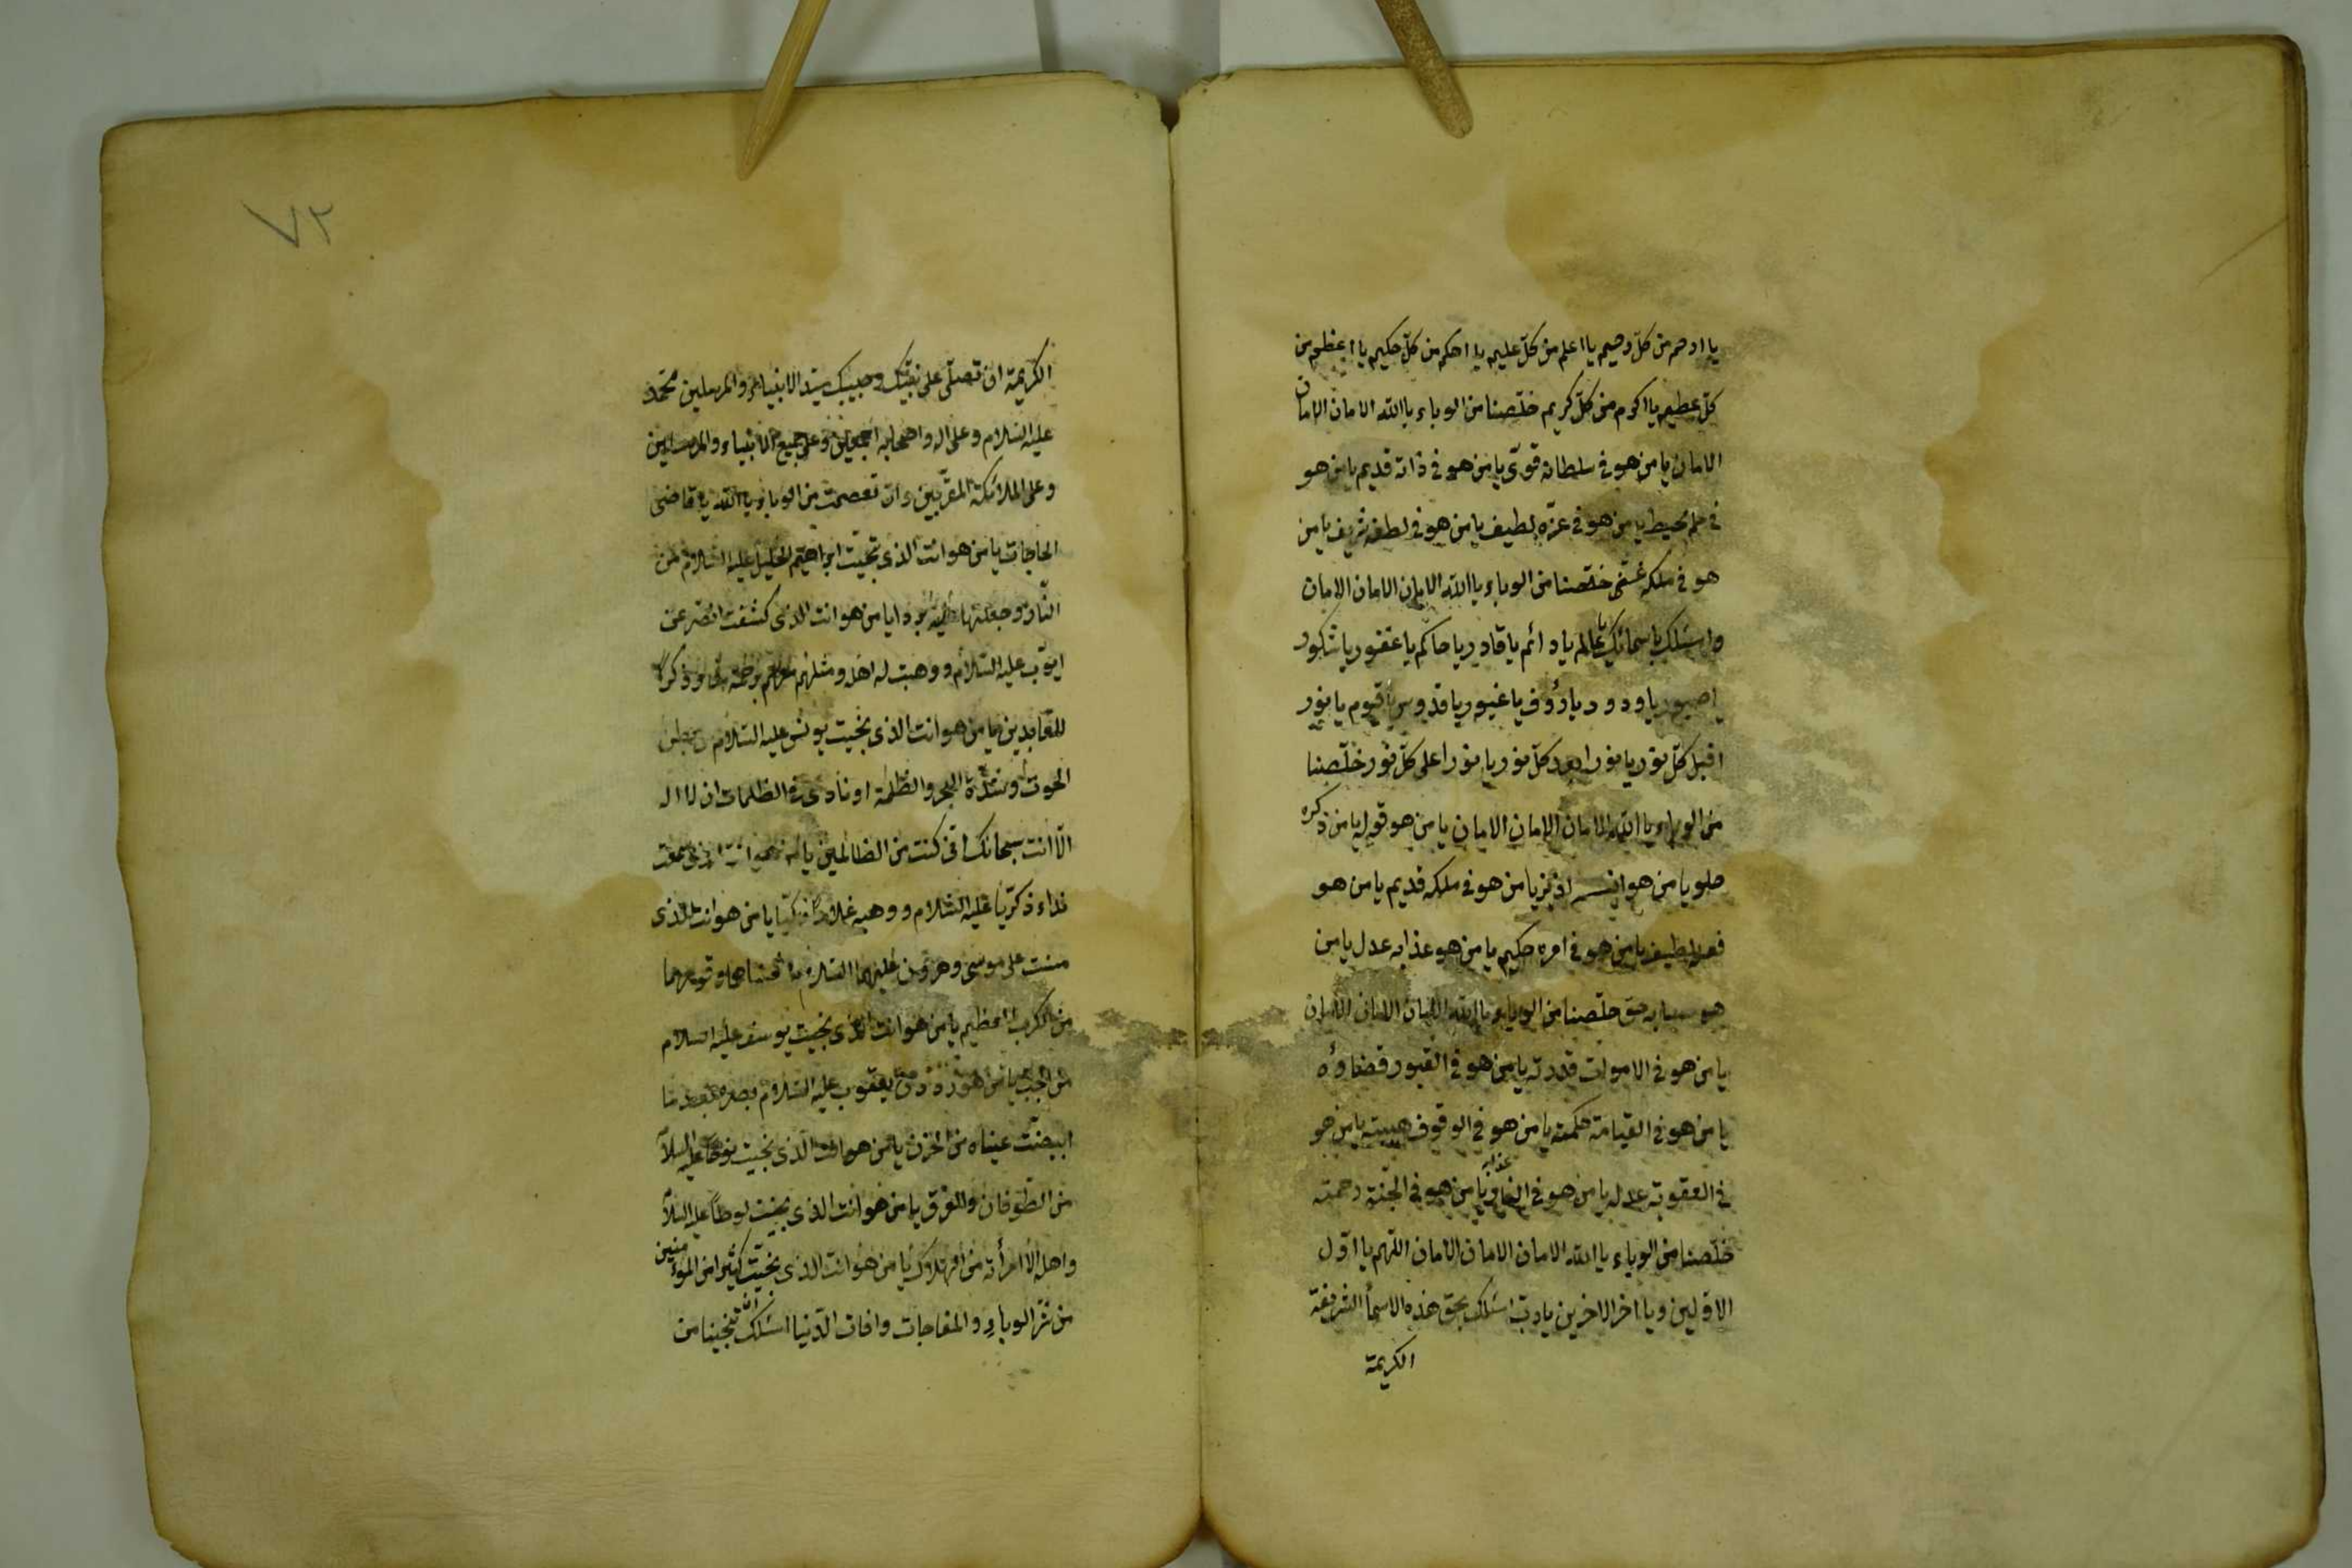 يا ارحم من كلّ رحيم يا اعلم من كلّ عليم يا احكم من كلّ حكيم يا اعظم من
كلّ عظيم يا اكرم من كلّ كريم خلّصنا من الوباء يا الله الامان الامان
الامان يا من هو في سلطانه قوىّ يا من هو في ذاته قديم يا من هو
في علمه محيط يا من هو في عزّه لطيف يا من هو في لطفه شريف يا من
هو في ملكه غنى خلّصنا من الوباء يا الله الامان الامان الامان
واسئلك باسمائك يا عالم يا دائم يا قادر يا حاكم يا غفور يا شكور
يا صبور يا ودود يا رؤف يا غيور يا قدوس يا قيوم يا نور
اقبل كلّ نور يا نورا بعد كلّ نور يا نورا على كلّ نور خلّصنا
من الوباء يا الله الامان الامان الامان يا من هو قوله يا من ذكره
حلو يا من هو انسه لذيذ يا من هو في ملكه قديم يا من هو
فعله لطيف يا من هو في امره حكيم يا من هو عذابه عدل يا من
هو حق خلّصنا من الوباء يا الله الامان الامان الامان
يا من هو في الاموات قدرته يا من هو في القبور قضاؤه
يا من هو في القيامة حكمته يا من هو في الوقوف هيبته يا من هو
في العقوبة عدله يا من هو في النار عذابه يا من هو في الجنة رحمته
خلّصنا من الوباء يا الله الامان الامان الامان اللهم يا اوّل
الاوّلين ويا اخر الاخرين يا ربّ اسئلك بحق هذه الاسمأ الشريفة
الكريمة
٧٢
الكريمة ان تصلّى على نبيّك وحبيبك سيّد الانبياء والمرسلين محمّد
عليه السّلام وعلى اله واصحابه اجمعين وعلى جميع الانبياء والمرسلين
وعلى الملائكة المقرّبين وان تعصمت من الوباء يا الله يا قاضى
الحاجات يا من هو انت الذى نجّيت ابراهيم الخليل عليه السّلام من
النّار وجعلتها بردا يا من هو انت الذى كشفت الضر عن
ايّوب عليه السّلام ووهبت له اهله ومثلهم معهم رحمة وذكرى
للعابدين يا من هو انت الذى نجّيت يونس عليه السّلام من بطن
الحوت وشدّة البحر والظلمة اونادى في الظلمات ان لا اله
الّا انت سبحانك انّى كنت من الظالمين يا من هو انت الذى سمعت
نداء ذكريّا عليه السّلام ووهبه غلاما زكيّا يا من هو انت الذى
مننت على موسى وهرون عليهما السّلام ونجّيناهما وقومهما
من الكرب العظيم يا من هو انت الذى نجّيت يوسف عليه السلام
من الجبّ يا من هو ردّ يعقوب عليه السّلام بصره بعد ما
ابيضّت عيناه من الحزن يا من هو انت الّذى نجّيت نوحًا عليه السلا
من الطّوفان والغرق يا من هو انت الذى نجّيت لوطًا عليه السلا
واهله الا امرأته من الهلاك يا من هو انت الذى نجّيت كثيرا من المؤمنين
من شرّ الوباء والمفاجات وافات الدّنيا اسئلك ان تنجينا من